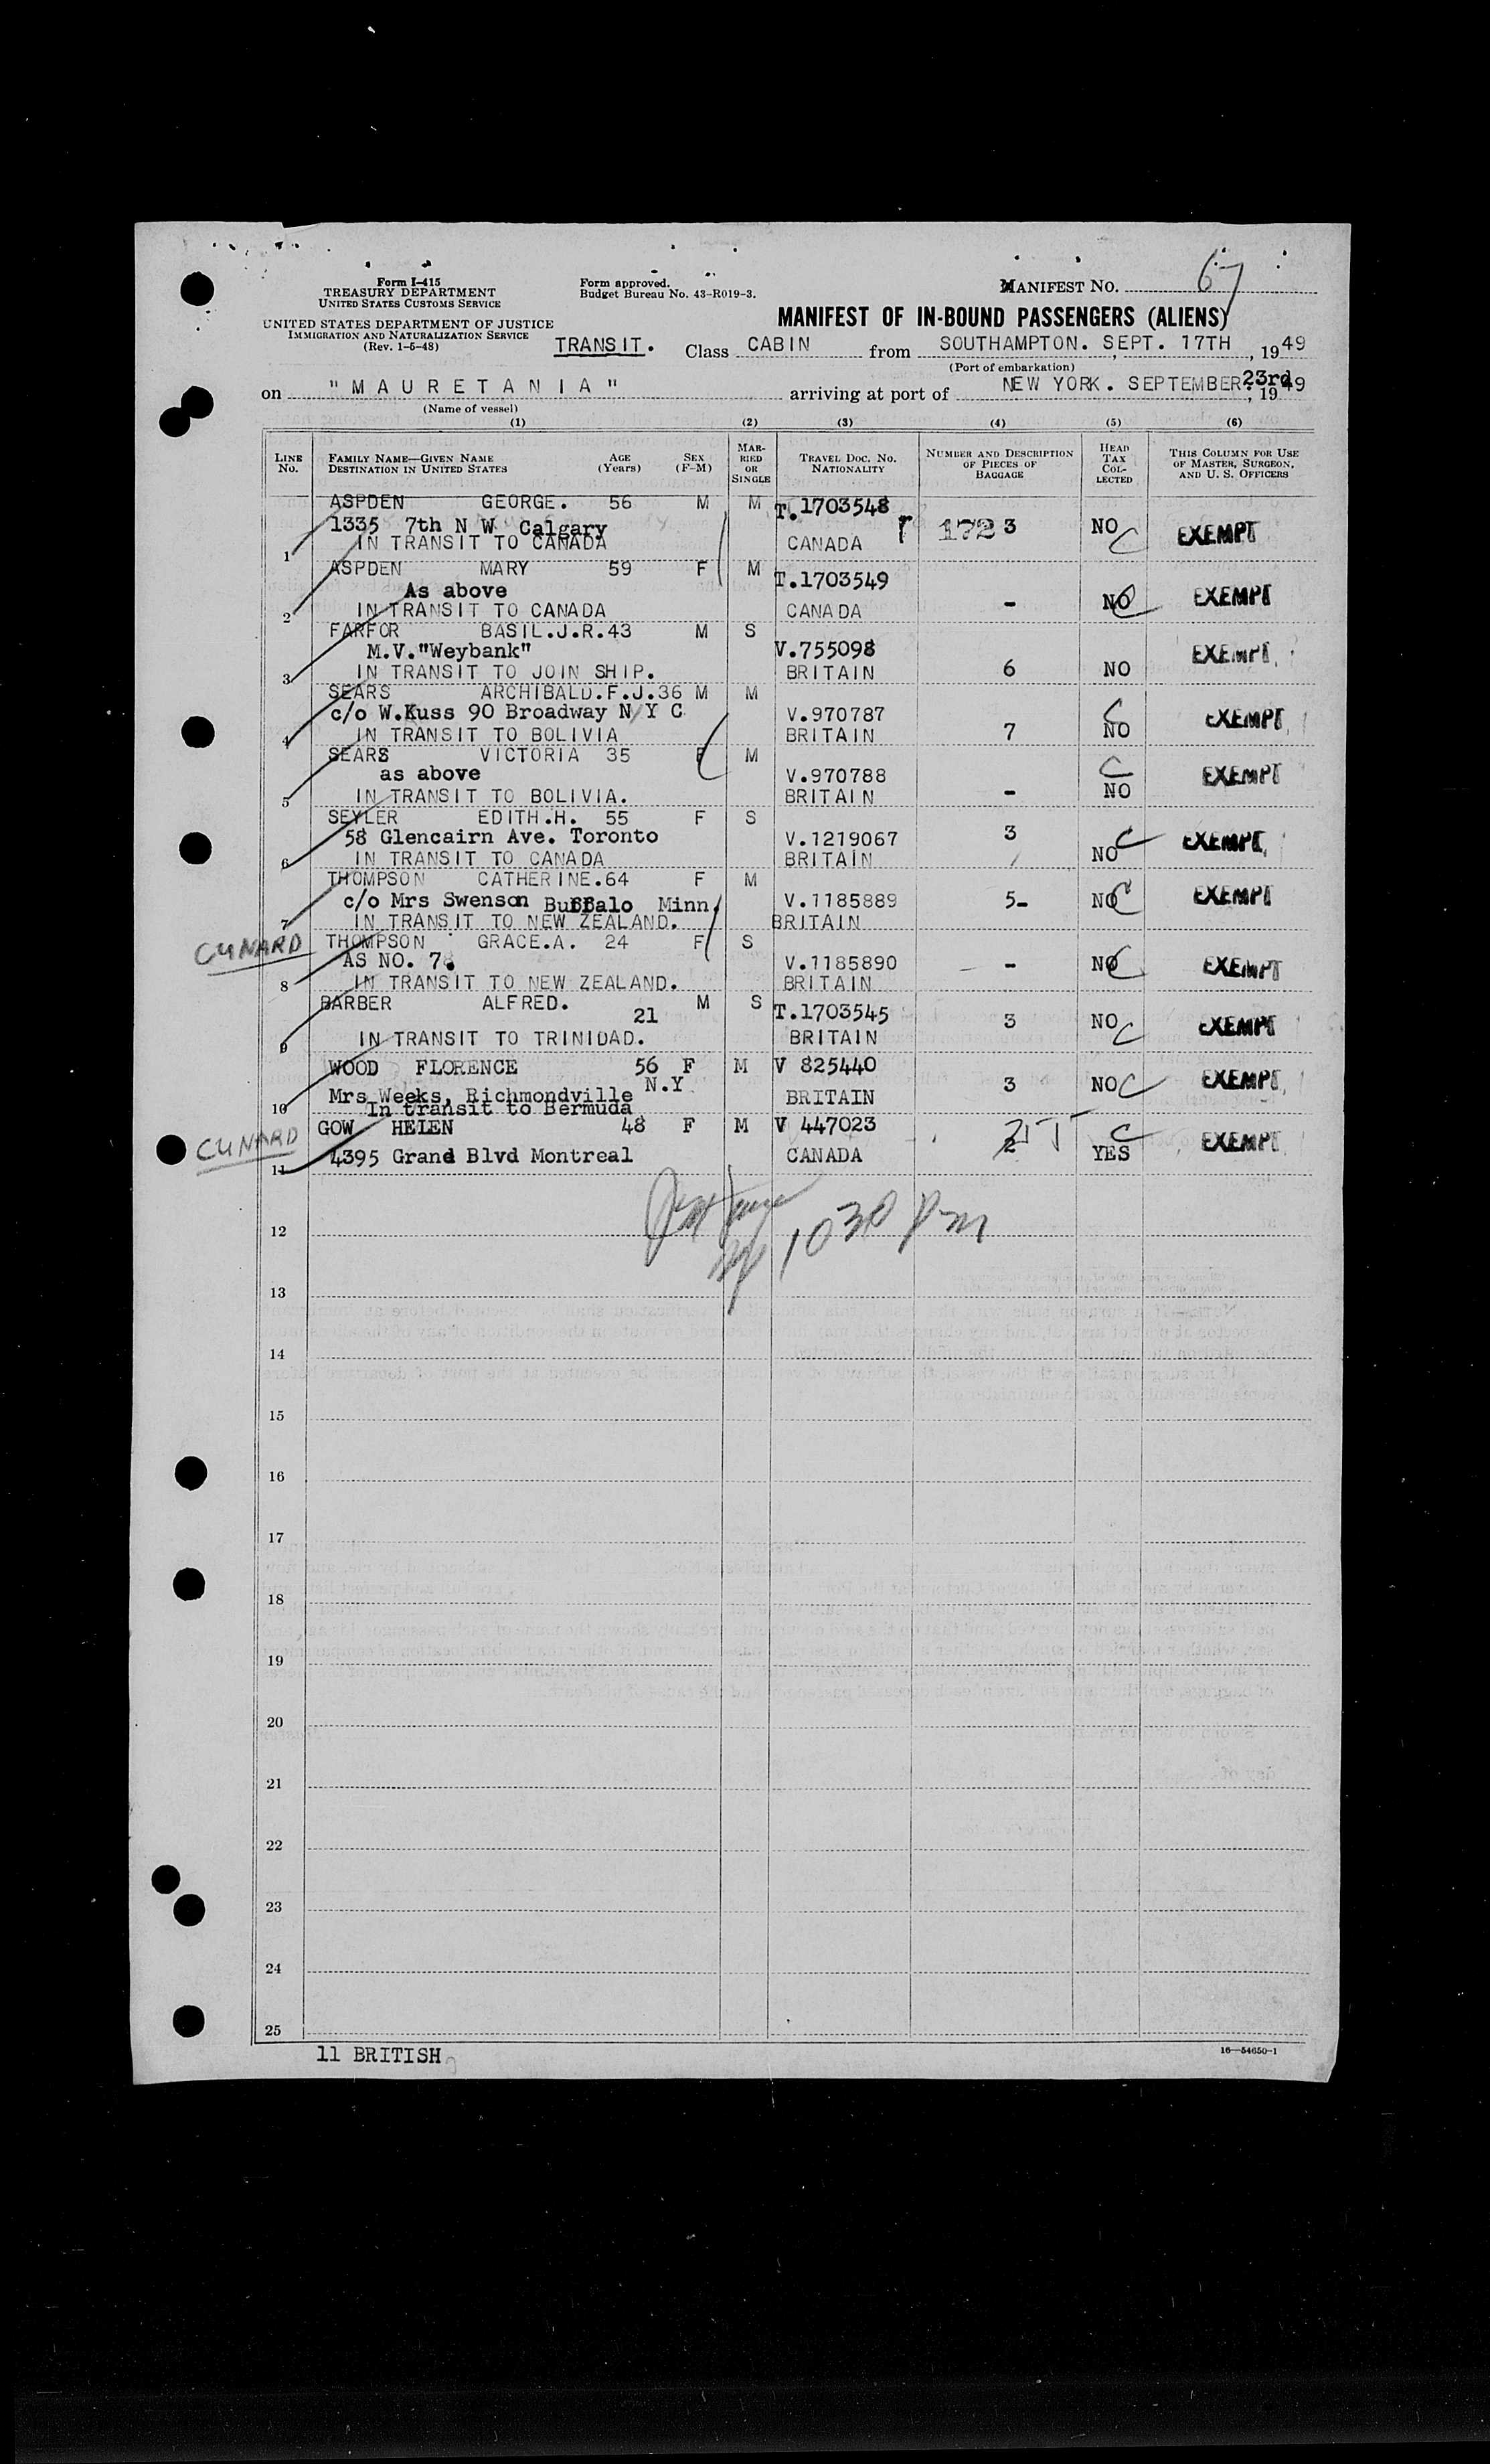 Form I-415
TREASURY DEPARTMENT
UNITED STATES CUSTOMS SERVICE
Form approved.
Budget Bureau No. 43-R019-3.
MANIFEST NO. 67
UNITED STATES DEPARTMENT OF JUSTICE
IMMIGRATION AND NATURALIZATION SERVICE
(Rev. 1-5-48)
MANIFEST OF IN-BOUND PASSENGERS (ALIENS)
TRANSIT. Class CABIN from SOUTHAMPTON. SEPT. 17TH, 1949
(Port of embarkation)
on "MAURETANIA" arriving at port of NEW YORK. SEPTEMBER 23rd, 1949
(Name of vessel)
(1) (2) (3) (4) (5) (6)
LINE No. FAMILY NAME—GIVEN NAME DESTINATION IN UNITED STATES AGE (Years) SEX (F-M) MARRIED OR SINGLE TRAVEL DOC. NO. NATIONALITY NUMBER AND DESCRIPTION OF PIECES OF BAGGAGE HEAD TAX COLLECTED THIS COLUMN FOR USE OF MASTER, SURGEON, AND U. S. OFFICERS
ASPDEN GEORGE. 56 M M T.1703548
1335 7th N W Calgary 172 3 NO C EXEMPT
1 IN TRANSIT TO CANADA CANADA
ASPDEN MARY 59 F M T.1703549
As above - NO C EXEMPT
2 IN TRANSIT TO CANADA CANADA
FARFOR BASIL.J.R.43 M S
M.V."Weybank" V.755098 EXEMPT
3 IN TRANSIT TO JOIN SHIP. BRITAIN 6 NO
SEARS ARCHIBALD.F.J.36 M M
c/o W.Kuss 90 Broadway N Y C V.970787 C EXEMPT
4 IN TRANSIT TO BOLIVIA BRITAIN 7 NO
SEARS VICTORIA 35 F M
as above V.970788 C EXEMPT
5 IN TRANSIT TO BOLIVIA. BRITAIN - NO
SEYLER EDITH.H. 55 F S
58 Glencairn Ave. Toronto V.1219067 3 C EXEMPT
6 IN TRANSIT TO CANADA BRITAIN NO
THOMPSON CATHERINE.64 F M
c/o Mrs Swenson Buffalo Minn. V.1185889 5- NO C EXEMPT
7 IN TRANSIT TO NEW ZEALAND. BRITAIN
CUNARD THOMPSON GRACE.A. 24 F S
AS NO. 7. V.1185890 - NO C EXEMPT
8 IN TRANSIT TO NEW ZEALAND. BRITAIN
BARBER ALFRED. M S T.1703545
21 3 NO C EXEMPT
9 IN TRANSIT TO TRINIDAD. BRITAIN
WOOD FLORENCE 56 F M V 825440
Mrs Weeks, Richmondville N.Y BRITAIN 3 NO C EXEMPT
10 In transit to Bermuda
CUNARD GOW HELEN 48 F M V 447023 2 C EXEMPT
11 4395 Grand Blvd Montreal CANADA YES
10 30 pm
12
13
14
15
16
17
18
19
20
21
22
23
24
25
11 BRITISH
16—54650-1